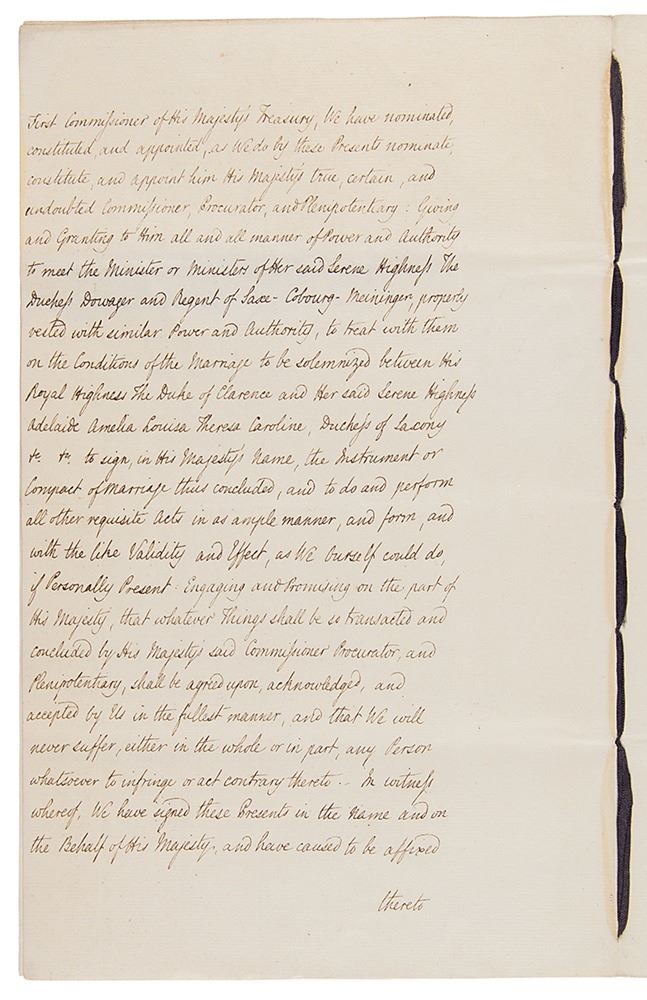 First Commissioner of His Majesty's Treasury, We have nominated,
constituted, and appointed, as We do by these Presents nominate,
constitute, and appoint him His Majesty's true, certain, and
undoubted Commissioner, Procurator, and Plenipotentiary: Giving
and Granting to Him all and all manner of Power and Authority
to meet the Minister or Ministers of Her said Serene Highness The
Duchess Dowager and Regent of Saxe-Cobourg-Meininger, properly
vested with similar Power and Authority, to treat with them
on the Conditions of the Marriage to be solemnized between His
Royal Highness The Duke of Clarence and Her said Serene Highness
Adelaide Amelia Louisa Theresa Caroline, Duchess of Saxony
&c. &c. to sign, in His Majesty's Name, the Instrument or
Compact of Marriage thus concluded, and to do and perform
all other requisite Acts in as ample manner, and form, and
with the like Validity and Effect, as We Ourself could do,
if Personally Present: Engaging and Promising on the part of
His Majesty, that whatever Things shall be so transacted and
concluded by His Majesty's said Commissioner Procurator, and
Plenipotentiary, shall be agreed upon, acknowledged, and
accepted by Us in the fullest manner, and that We will
never suffer, either in the whole or in part, any Person
whatsoever to infringe or act contrary thereto.- In witness
whereof, We have signed these Presents in the Name and on
the Behalf of His Majesty, and have caused to be affixed
thereto